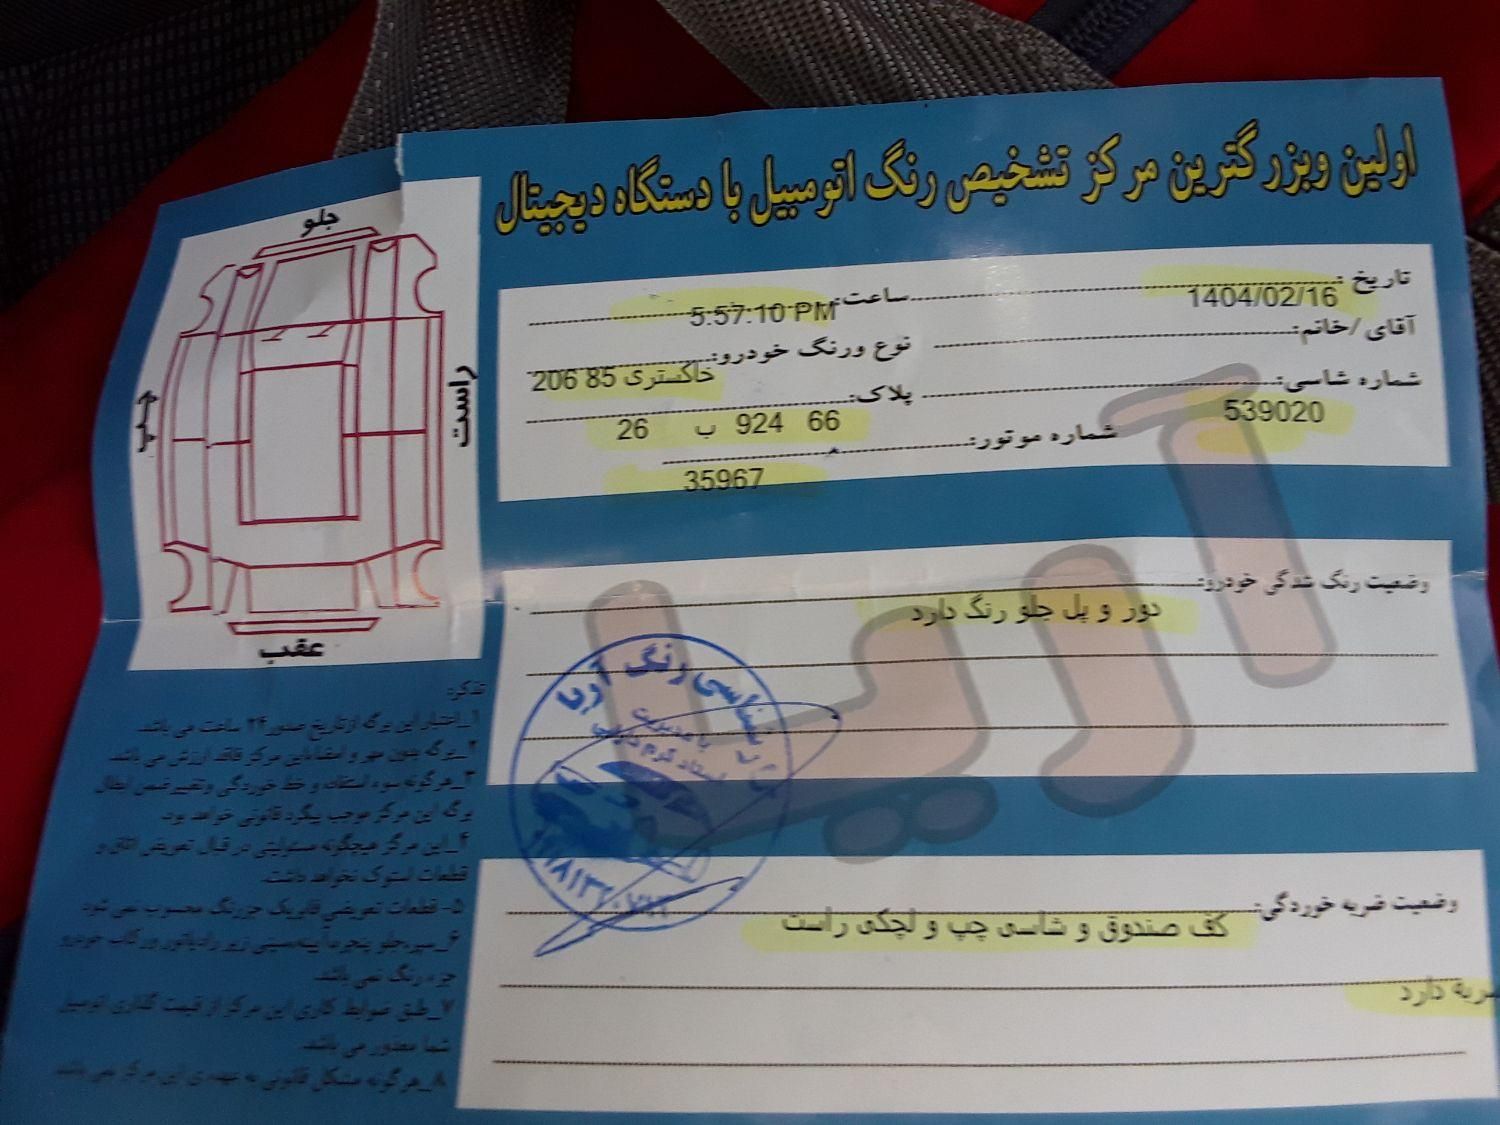 اولین وبزرگترین مرکز تشخیص رنگ اتومبیل با دستگاه دیجیتال
تاریخ: 1404/02/16 ساعت: 5:57:10 PM
آقای /خانم: نوع ورنگ خودرو: خاکستری 85 206
شماره شاسی: 539020 پلاک: 26 ب 924 66
شماره موتور: 35967
جلو
چپ
راست
عقب
وضعیت رنگ شدگی خودرو:
دور و پل جلو رنگ دارد
کارشناسی رنگ آریا
با مدیریت
استاد کرم
آریا
وضعیت ضربه خوردگی:
کف صندوق و شاسی چپ و لچکی راست
ضربه دارد
تذکر:
۱_اعتبار این برگه از تاریخ صدور ۲۴ ساعت می باشد.
۲_برگه بدون مهر و امضا این مرکز فاقد ارزش می باشد.
۳_هرگونه سوء استفاده و خط خوردگی وتغییر ضمن ابطال
برگه این مرکز موجب پیگرد قانونی خواهد بود.
۴_این مرکز هیچگونه مسئولیتی در قبال تعویض اتاق و
قطعات استوک نخواهد داشت.
۵- قطعات تعویضی فابریک جزرنگ محسوب نمی شود
۶_سپر،جلو پنجره،آیینه،سینی زیر رادیاتور ورکاب خودرو
جزء رنگ نمی باشد.
۷_طبق ضوابط کاری این مرکز از قیمت گذاری اتومبیل
شما معذور می باشد.
۸_هرگونه مشکل قانونی به عهده ی این مرکز نمی باشد